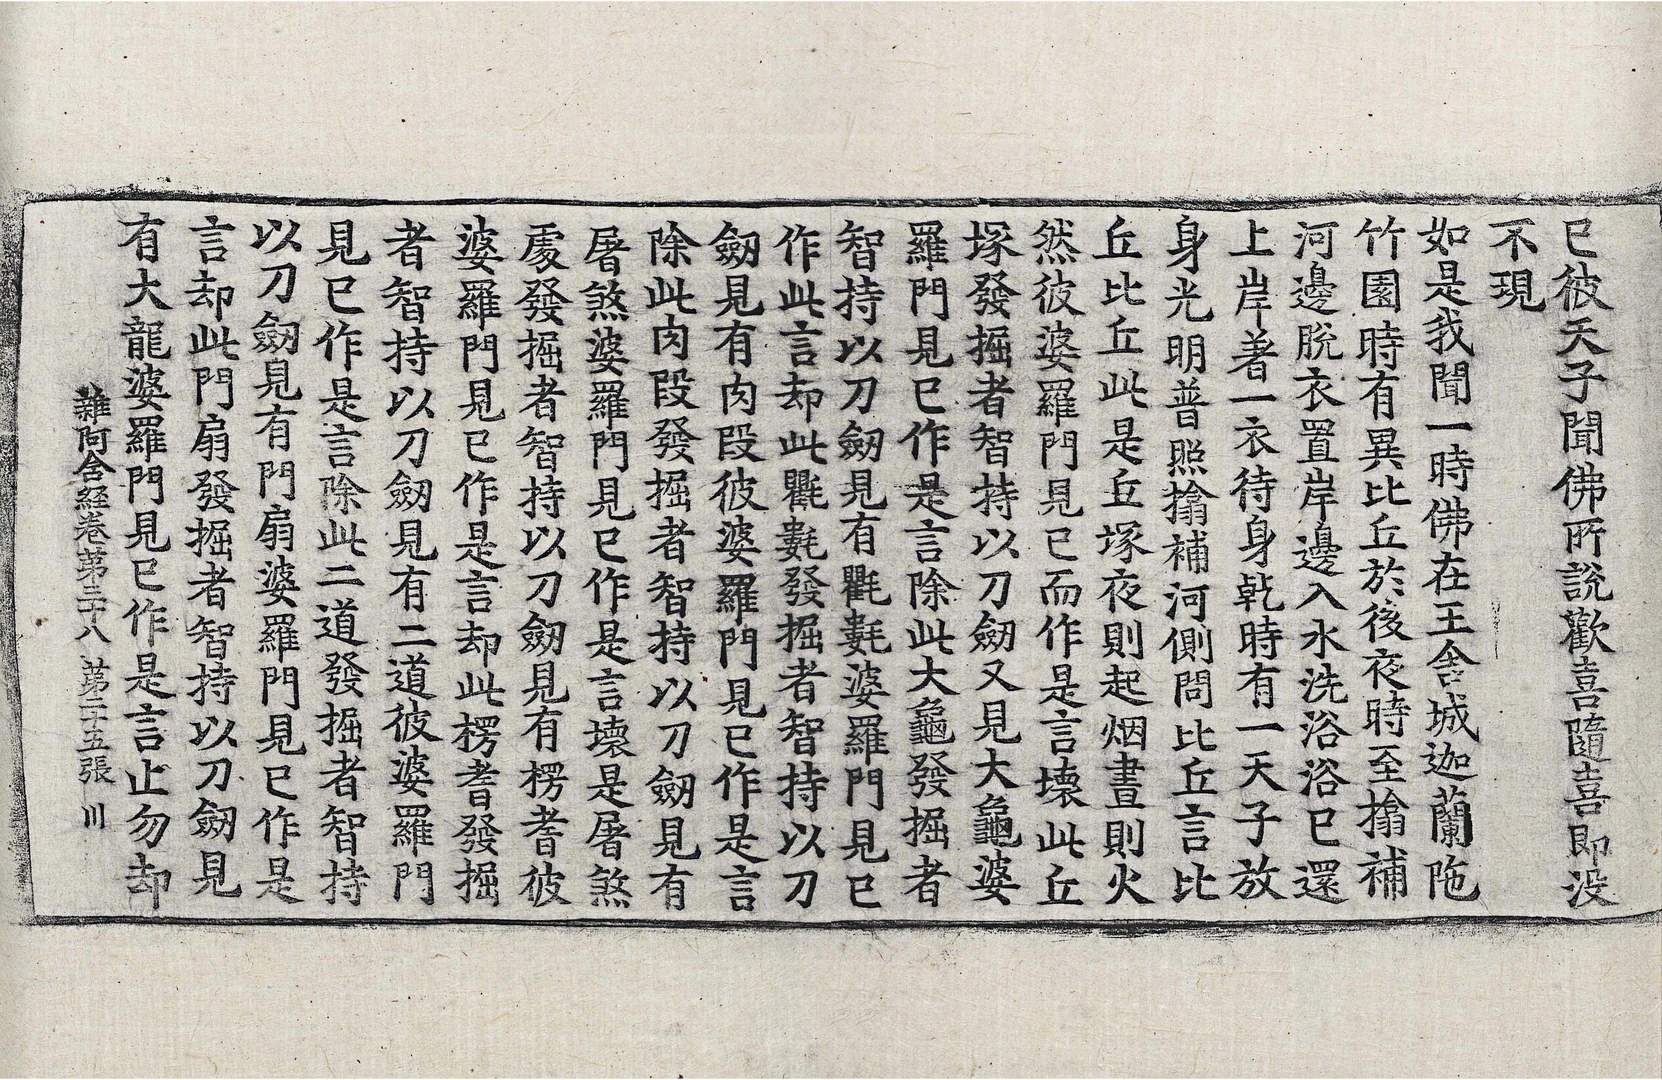 已彼天子聞佛所說歡喜隨喜即没
不現
如是我聞一時佛在王舍城迦蘭陁
竹園時有異比丘於後夜時至搚補
河邊脫衣置岸邊入水洗浴浴已還
上岸著一衣待身乹時有一天子放
身光明普照搚補河側問比丘言比
丘比丘此是丘塚夜則起烟晝則火
然彼婆羅門見已而作是言壞此丘
塚發掘者智持以刀劒又見大龜婆
羅門見已作是言除此大龜發掘者
智持以刀劒見有氍𣯾婆羅門見已
作此言却此氍𣯾發掘者智持以刀
劒見有肉段彼婆羅門見已作是言
除此肉段發掘者智持以刀劒見有
屠煞婆羅門見已作是言壞是屠煞
䖏發掘者智持以刀劒見有楞耆彼
婆羅門見已作是言却此楞耆發掘
者智持以刀劒見有二道彼婆羅門
見已作是言除此二道發掘者智持
以刀劒見有門扇婆羅門見已作是
言却此門扇發掘者智持以刀劒見
有大龍婆羅門見已作是言止勿却
雜阿含経卷第三十八 第二十五張 川